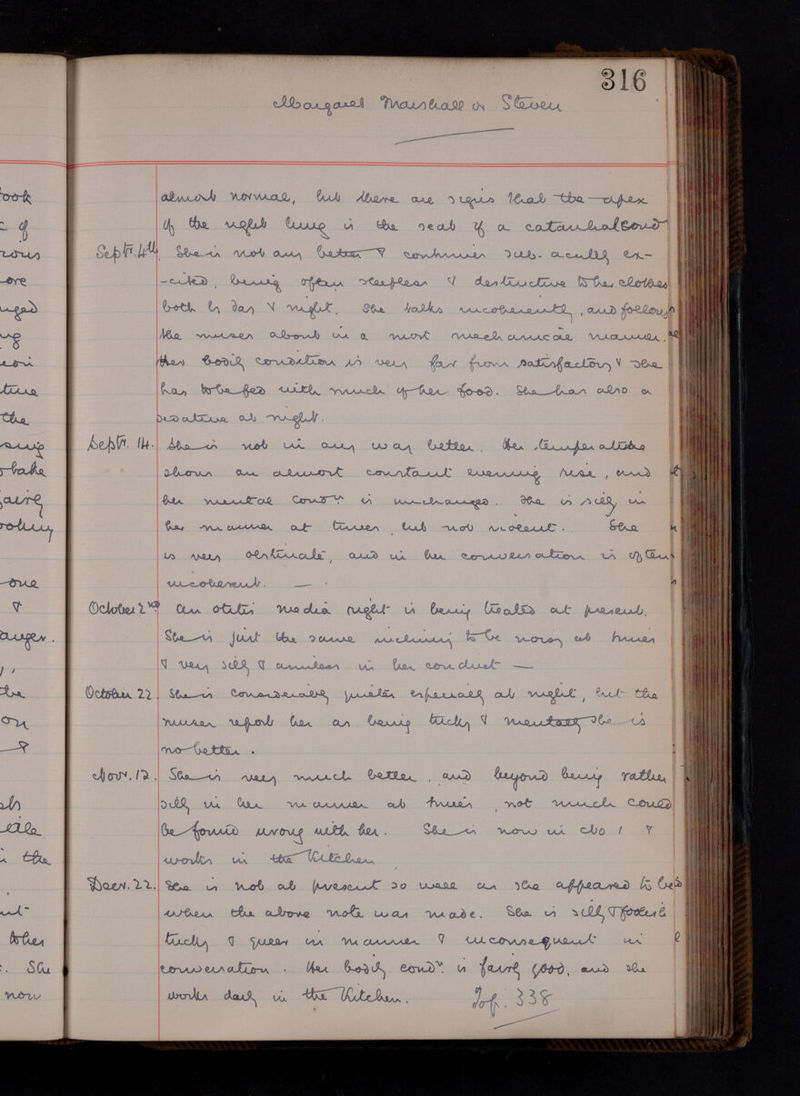 316
Margaret Marshall or Steven
almost normal, but there are signs that the apex
of the right lung is the seat of a catarrhal cond
Septr. 4th She is not any better & continues sub-acutely ex-
-cited, being often sleepless & destructive to her clothes
both by day & night. She talks incoherently, and follows
the nurses about in a most mechanical manner.
Her bodily condition is very far from satisfactory & she
has to be fed with much of her food. She has also a
sedative at night.
Septr. 14. She is not in any way better. Her temperature
shows an almost constant evening rise, and
her mental condn is unchanged. She is silly in
her manner at times but not violent. She
is very obstinate, and in her conversation is often
incoherent. —
October 2nd An otitis media right is being treated at present.
She is just the same inclining to be noisy at times
& very silly & aimless in her conduct —
October 22. She is considerably quieter especially at night, but the
nurses report her as being tricky & mentally she is
no better.
Novr. 12. She is very much better, and beyond being rather
silly in her manner at times, not much could
be found wrong with her. She is now in No 1 &
works in the Kitchen
Decr. 22. She is not at present so well as she appeared to be
when the above note was made. She is silly & foolish
tricky & queer in manner & inconsequent in
conversation. Her bodily condn. is fairly good, and she
works daily in the Kitchen. 338
ook
of
ore
the
one
&
anger.
the
on
&
the
She
now